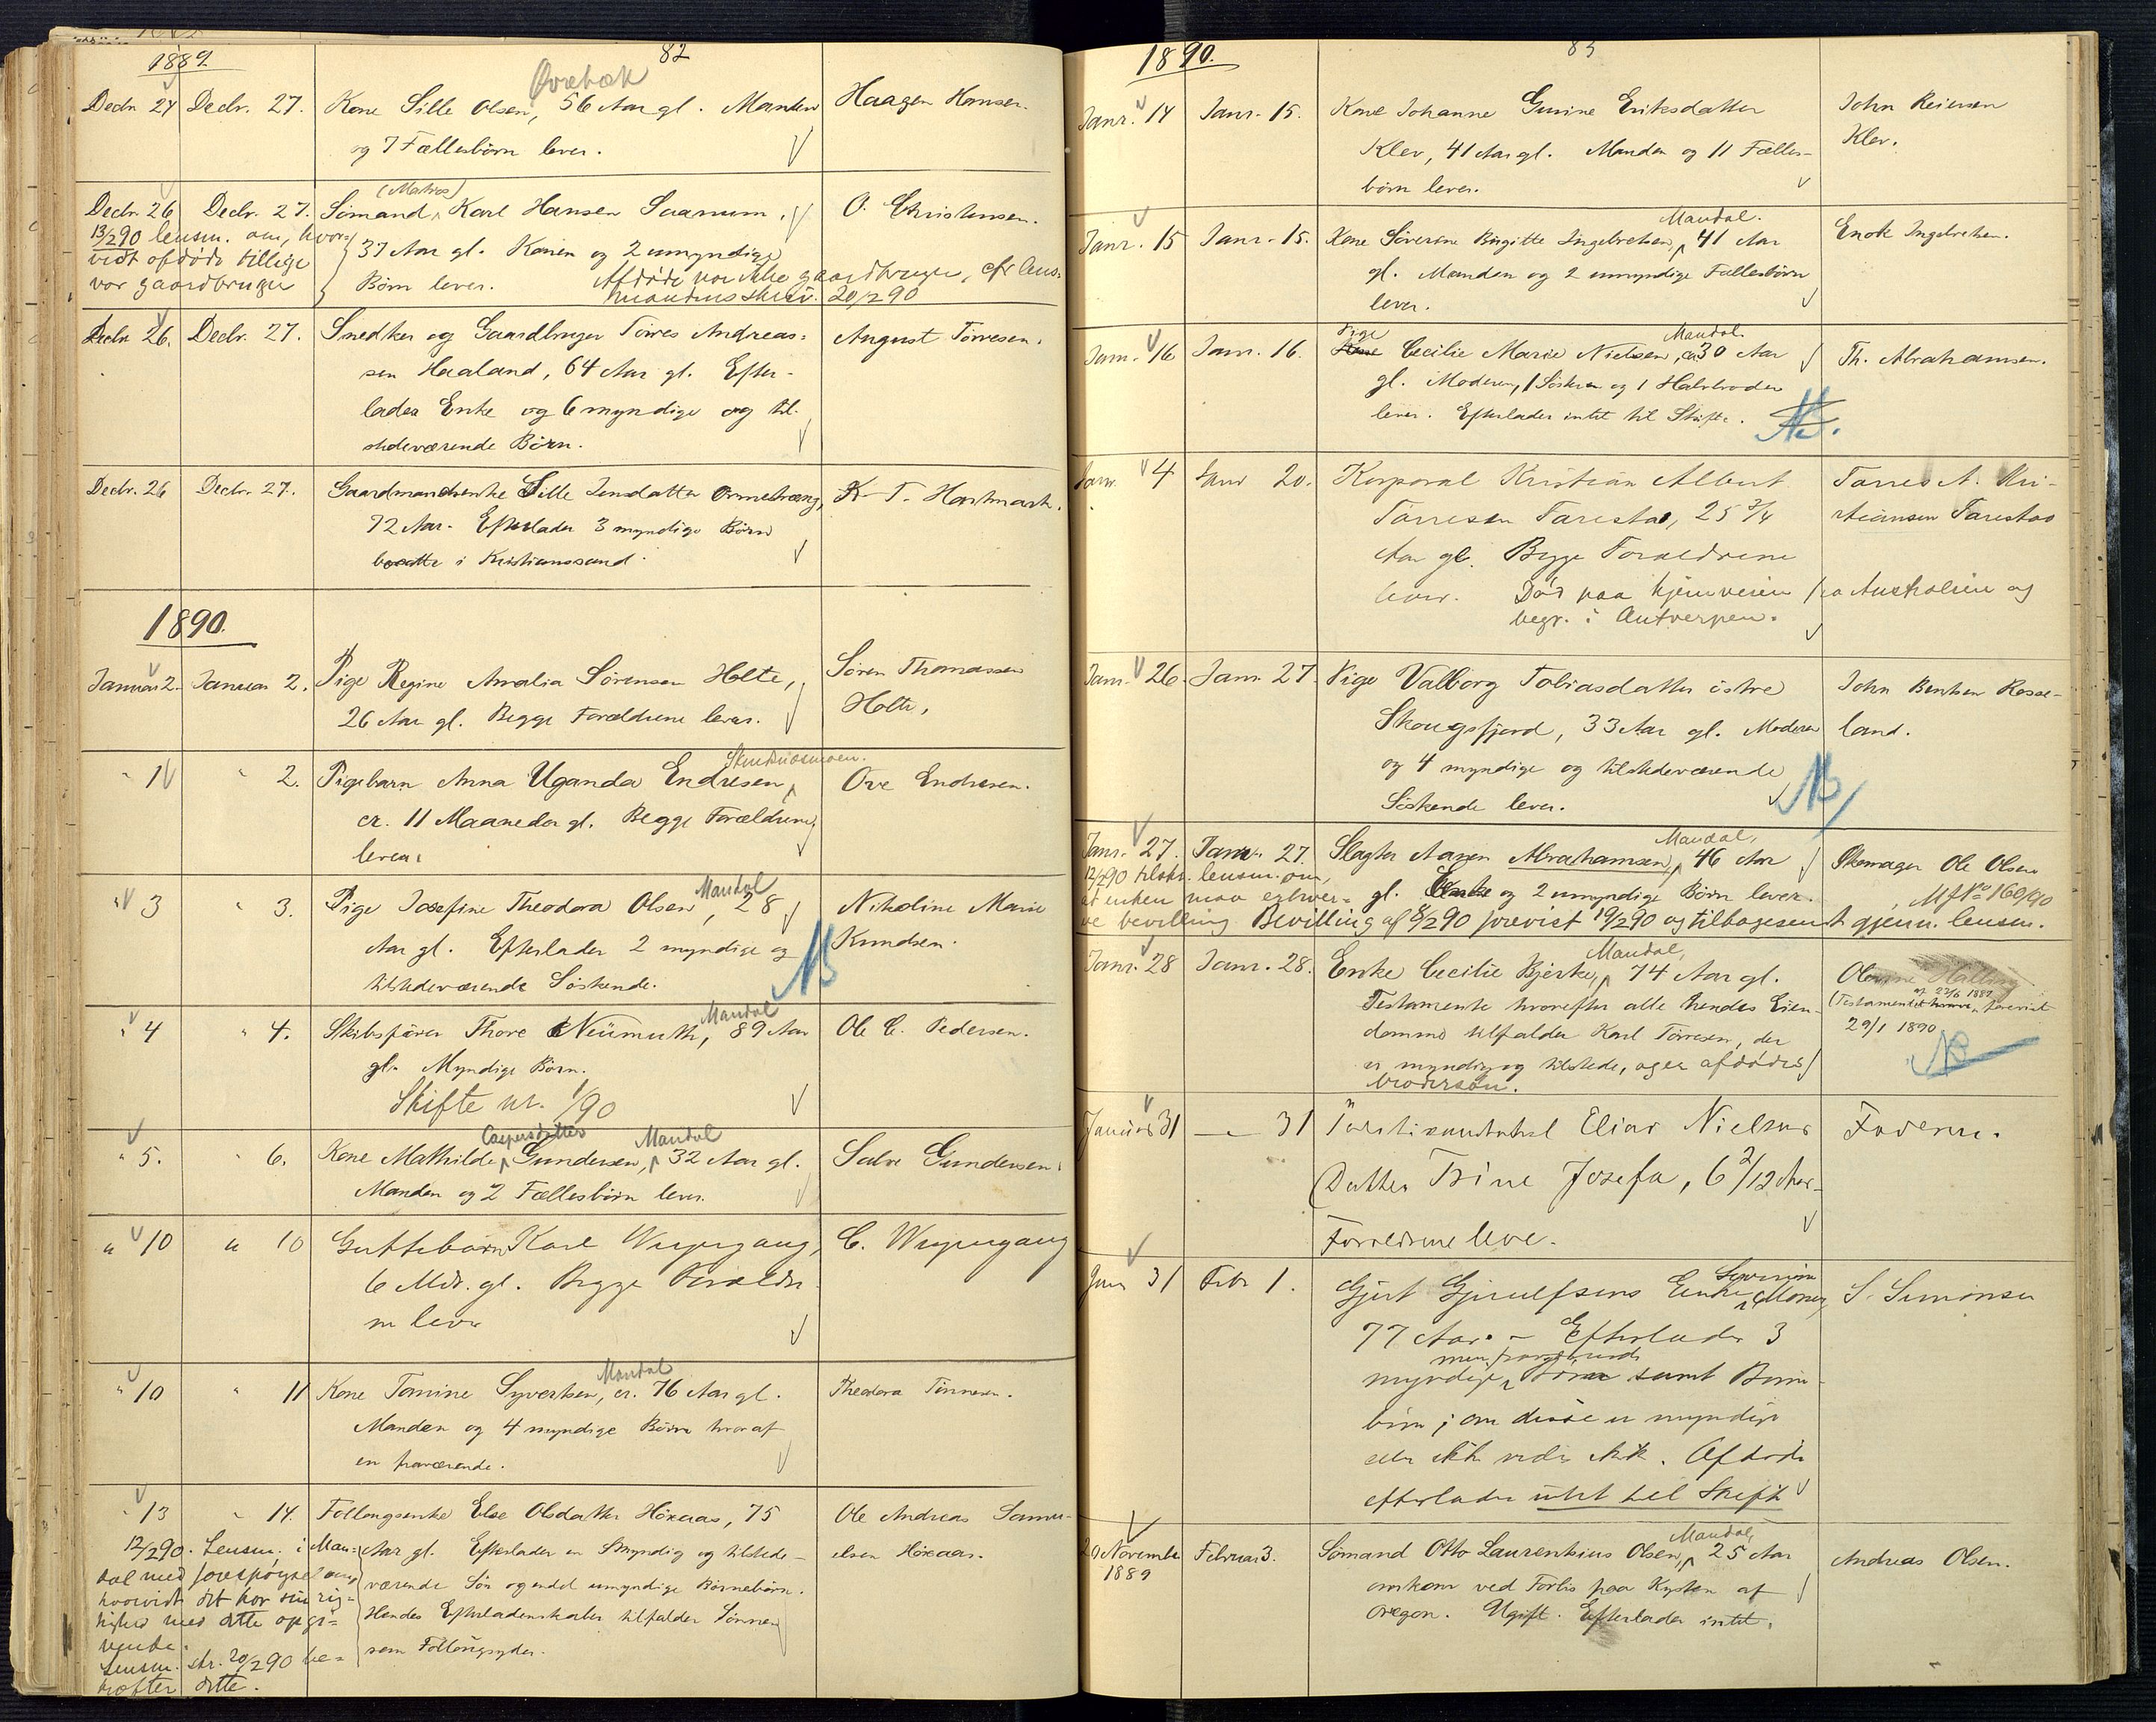 82
1889
Decbr. 24 Decbr. 27. Kone Sille Olsen, Øvrebæk 56 Aar gl. Manden Haagen Hansen.
og 7 Fællesbörn lever.
(Matros)
Decbr. 26 Decbr. 27. Sömand, Karl Hansen Saanum, O. Christensen.
13/2 90 lensm. om, hvor-
vidt afdöde tillige
var gaardbruger
37 Aar gl. Konen og 2 umyndige
Börn lever. Afdöde var ikke gaardbruger, efr. lens-
mandens skriv. 20/2 90
Decbr. 26. Decbr. 27. Snedker og Gaardbruger Törres Andreas- August Törresen.
sen Haaland, 64 Aar gl. Efter-
lader Enke og 6 myndige og til-
stedeværende Börn.
Decbr. 26 Decbr. 27. Gaardmandsenke Sille Jensdatter K. T. Hartmark.
72 Aar. Efterlader 3 myndige Börn
bosatte i Kristianssand.
1890.
Januar 2. Januar 2. Pige Regine Amalia Sörensen Holte, Sören Thomassen
26 Aar gl. Begge Forældrene lever. Holte,
" 1 " 2. Pigebarn Anna Uganda Endresen, Ove Endresen.
cr. 11 Maaneder gl. Begge Forældrene
lever.
" 3 " 3. Pige Josefine Theodora Olsen, Mandal 28 Nikoline Marie
Aar gl. Efterlader 2 myndige og Knudsen.
tilstedeværende Söskende. NB
" 4 " 4. Skibsförer Thore Neümuth, Mandal 89 Aar Ole C. Pedersen.
gl. Myndige Börn.
Skifte nr. 1/90
" 5. " 6. Kone Mathilde Caspersdatter Gundersen, Mandal 32 Aar gl. Salve Gundersen.
Manden og 2 Fællesbörn lever.
" 10 " 10 Guttebarn Karl Wejergang, C. Wejergang
6 Mdr. gl. Begge Forældre
ne lever
" 10 " 11 Kone Tomine Syvertsen, Mandal cr. 76 Aar gl. Theodora Tönnesen.
Manden og 4 myndige Börn hvoraf
en fraværende.
" 13 " 14. Föllougsenke Else Olsdatter Höxaas, 75 Ole Andreas Samu-
Aar gl. Efterlader en myndig og tilstede- elsen Höxaas.
værende Sön og endel umyndige Börnebörn.
Hendes Efterladenskaber tilfalder Sönnen
som Föllougsyder.
12/2 90. Lensm. i Man-
dal med forespörgsel om,
hvorvidt det har sin rig-
tighed med dette opgi-
vende.
Lensm. skr. 20/2 90 be-
kræfter dette.
83
1890.
Janr. 14 Janr. 15. Kone Johanne Gurine Eriksdatter John Reiersen
Klev, 41 Aar gl. Manden og 11 Fælles- Klev.
börn lever.
Janr. 15 Janr. 15. Kone Söverine Birgitte Ingebretsen, Mandal. 41 Aar Enok Ingebretsen.
gl. Manden og 2 umyndige Fællesbörn
lever.
Janr. 16 Janr. 16. Pige Cecilie Marie Nielsen, Mandal ca 30 Aar Th. Abrahamsen.
gl. Moderen, 1 Sösteren og 1 Halvbroder
lever. Efterlader intet til Skifte. NB.
Janr. 4 Janr 20. Korporal Kristian Albert Tarres A. Kri-
Tarresen Farestad, 25 3/4 stiansen Farestad
Aar gl. Begge Forældrene
lever. Död paa hjemveien fra Australien og
begr. i Antverpen.
Janr. 26. Janr 27 Pige Valborg Tobiasdatter östre John Bentsen Rosse-
Skougsfjord, 33 Aar gl. Moderen land.
og 4 myndige og tilstedeværende
Söskende lever. NB
Janr. 27. Janr. 27. Slagter Aanen Abrahamsen, Mandal, 46 Aar Skomager Ole Olsen
gl. Enke og 2 umyndige Börn lever. Mf No 160/90
12/2 90 tilskr. lensm. om,
at enken maa erhver-
ve bevilling Bevilling af 8/2 90 forevist 19/2 90 og tilbagesendt gjenn. lensm.
Janr. 28 Janr. 28. Enke Cecilie Bjerke, Mandal, 74 Aar gl.
Testamente hvorefter alle hendes Eien- (Testamentet af 22/6 1889 forevist
domme tilfalder Karl Törresen, der 29/1 1890
er myndig og tilstede, og er afdödes NB
brodersön.
Januar 31 — " 31 Elias Nielsens Faderen.
Datter Trine Josefa, 6 2/12 Aar.
Forældrene leve.
Janr 31 Febr 1. Gjert Gjerulfsens Enke Severine S. Simonsen
77 Aar. – Efterlader 3
myndige, men fraværende Börn samt Börne-
börn; om disse er myndige
eller ikke vides ikke. Afdöde
efterlader intet til Skifte
20 November
1889 Februar 3. Sömand Otto Laurentius Olsen, Mandal, 25 Aar Andreas Olsen.
omkom ved Forlis paa Kysten af
Oregon. Ugift. Efterlader intet.